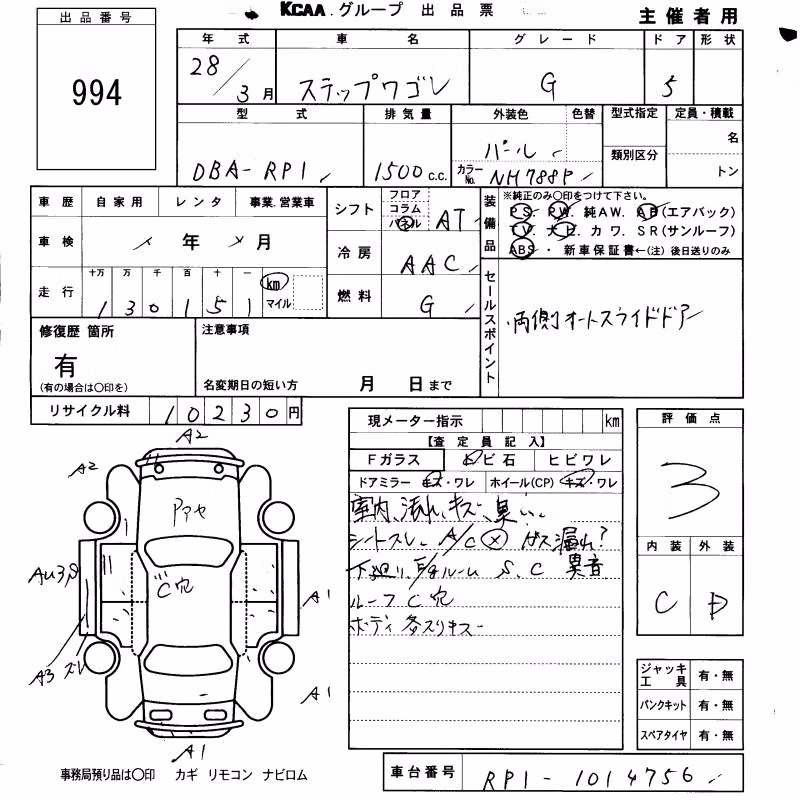 KCAA グループ 出品票
主催者用
出品番号
994
年式 車名 グレード ドア 形状
28/3月 ステップワゴン G 5
型式 排気量 外装色 色替 型式指定 定員・積載
DBA-RP1 1500c.c. パール カラーNo. NH788P 類別区分 名 トン
車歴 自家用 レンタ 事業.営業車
車検 年 月
走行 十万 万 千 百 十 一
130151 km マイル
シフト フロア コラム パネル AT
冷房 AAC
燃料 G
装備品 ※純正のみ○印をつけて下さい。
PS. PW. 純AW. AB(エアバック)
TV. ナビ. カワ. SR(サンルーフ)
ABS・ 新車保証書←(注) 後日送りのみ
セールスポイント
両側オートスライドドアー
修復歴 箇所
有
(有の場合は○印を)
注意事項
名変期日の短い方 月 日まで
リサイクル料 10230円
現メーター指示 km
【査定員記入】
Fガラス トビ石 ヒビワレ
ドアミラー キズ・ワレ ホイール(CP) キズ・ワレ
室内、汚れ、キズ、臭い、、
シートスレ A/C × ガス漏れ?
下廻り、E/gルーム S、C 異音
ルーフC穴
ボディ 多スリキズ
評価点
3
内装 外装
C D
ジャッキ工具 有・無
パンクキット 有・無
スペアタイヤ 有・無
A2
A2
C穴
A1
A3 ズレ
A1
A1
事務局預り品は○印 カギ リモコン ナビロム
車台番号 RP1-1014756